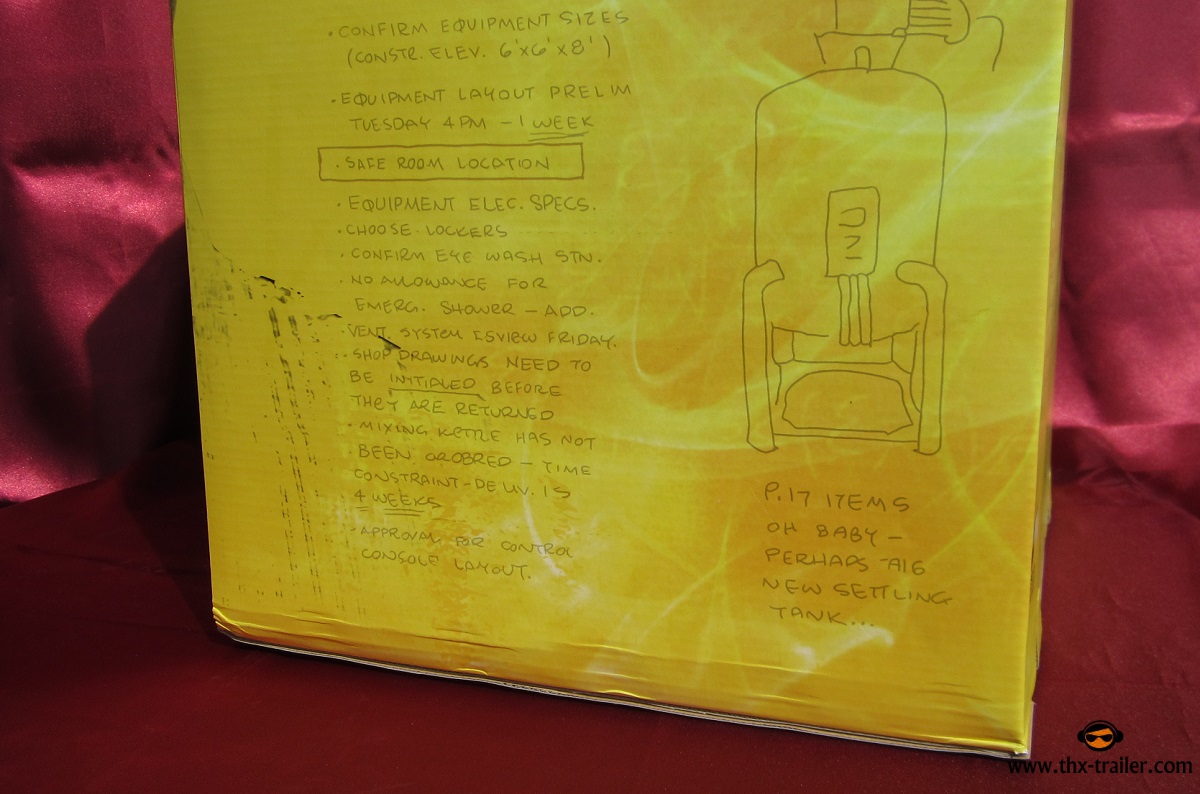 • CONFIRM EQUIPMENT SIZES
(CONSTR. ELEV. 6'x6'x8')
• EQUIPMENT LAYOUT PRELIM
TUESDAY 4 PM – 1 WEEK
• SAFE ROOM LOCATION
• EQUIPMENT ELEC. SPECS.
• CHOOSE LOCKERS
• CONFIRM EYE WASH STN.
• NO ALLOWANCE FOR
EMERG. SHOWER – ADD.
• VENT. SYSTEM FRIDAY.
• SHOP DRAWINGS NEED TO
BE INITIALED BEFORE
THEY ARE RETURNED
• MIXING KETTLE HAS NOT
BEEN – TIME
CONSTRAINT – DELIV. IS
4 WEEKS
• APPROVAL FOR CONTROL
CONSOLE LAYOUT.
P.17 ITEMS
OH BABY –
PERHAPS
NEW SETTLING
TANK...
www.thx-trailer.com